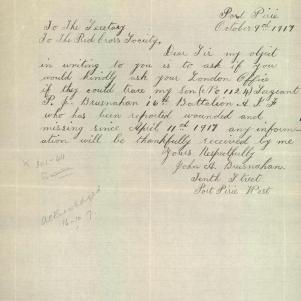 Port Pirie
October 9th 1917
To The Secretary
To The Red Cross Society.
Dear Sir my object
in writing to you is to ask if you
would kindly ask your London Office
if they could trace my son (No 1124) Sargeant
P. J. Brusnahan 16th Battalion A.I.F
who has been reported wounded and
missing since April 11th 1917 any inform
ation will be thankfully received by me
Yours Respectfully
John A. Brusnahan
Tenth Street
Port Pirie West
acknowledged
16-10-7